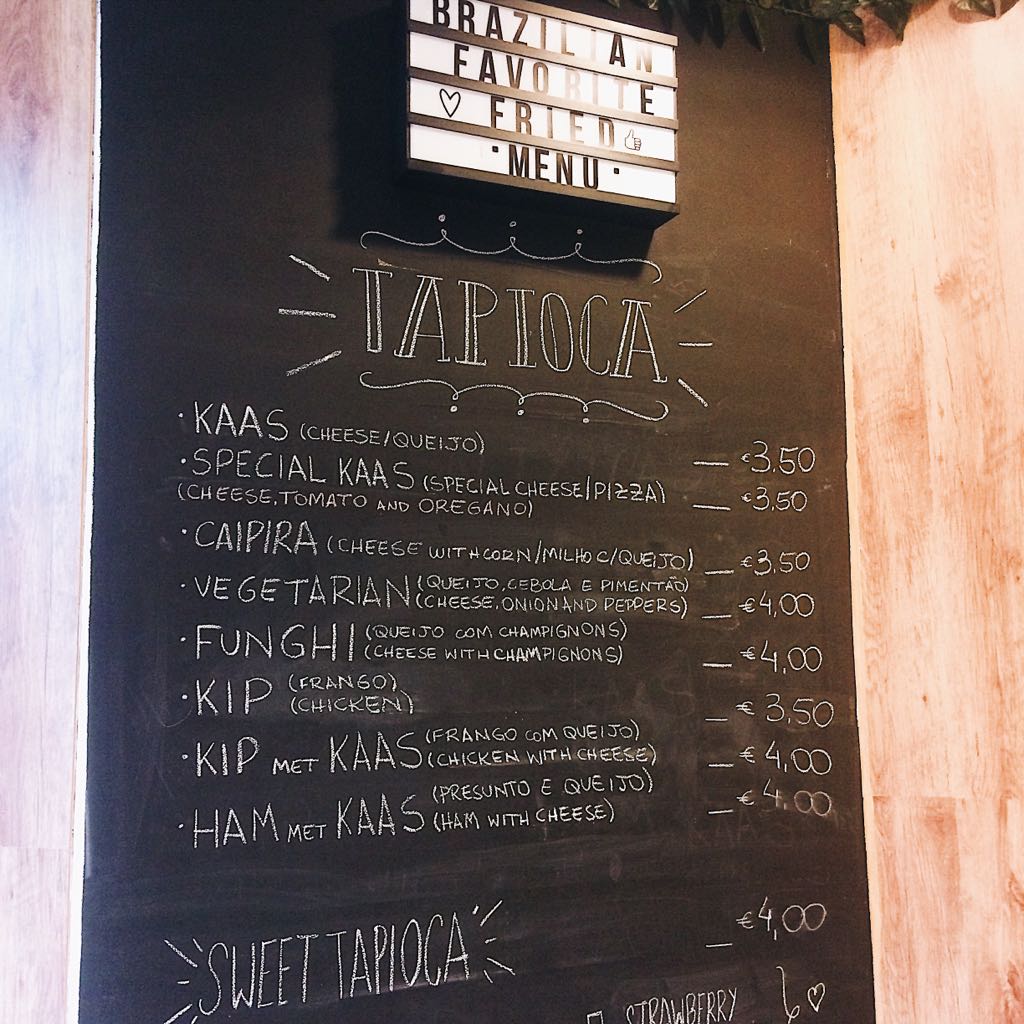 BRAZILIAN
FAVORITE
FRIED
• MENU •
TAPIOCA
• KAAS (CHEESE/QUEIJO) — €3,50
• SPECIAL KAAS (SPECIAL CHEESE/PIZZA) — €3,50
(CHEESE, TOMATO AND OREGANO)
• CAIPIRA (CHEESE WITH CORN/MILHO C/QUEIJO) — €3,50
• VEGETARIAN (QUEIJO, CEBOLA E PIMENTÃO)
(CHEESE, ONION AND PEPPERS) — €4,00
• FUNGHI (QUEIJO COM CHAMPIGNONS)
(CHEESE WITH CHAMPIGNONS) — €4,00
• KIP (FRANGO)
(CHICKEN) — €3,50
• KIP MET KAAS (FRANGO COM QUEIJO)
(CHICKEN WITH CHEESE) — €4,00
• HAM MET KAAS (PRESUNTO E QUEIJO)
(HAM WITH CHEESE) — €4,00
SWEET TAPIOCA — €4,00
STRAWBERRY